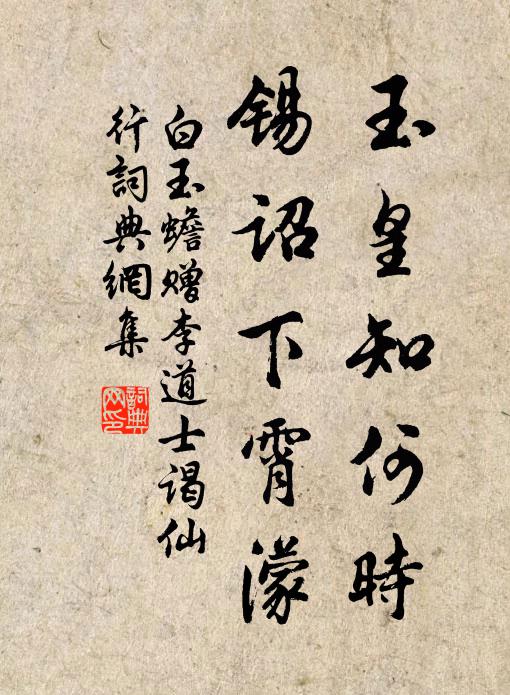 玉皇知何時
錫詔下霄濛
白玉蟾贈李道士謁仙
行詞典網集
詞典网印